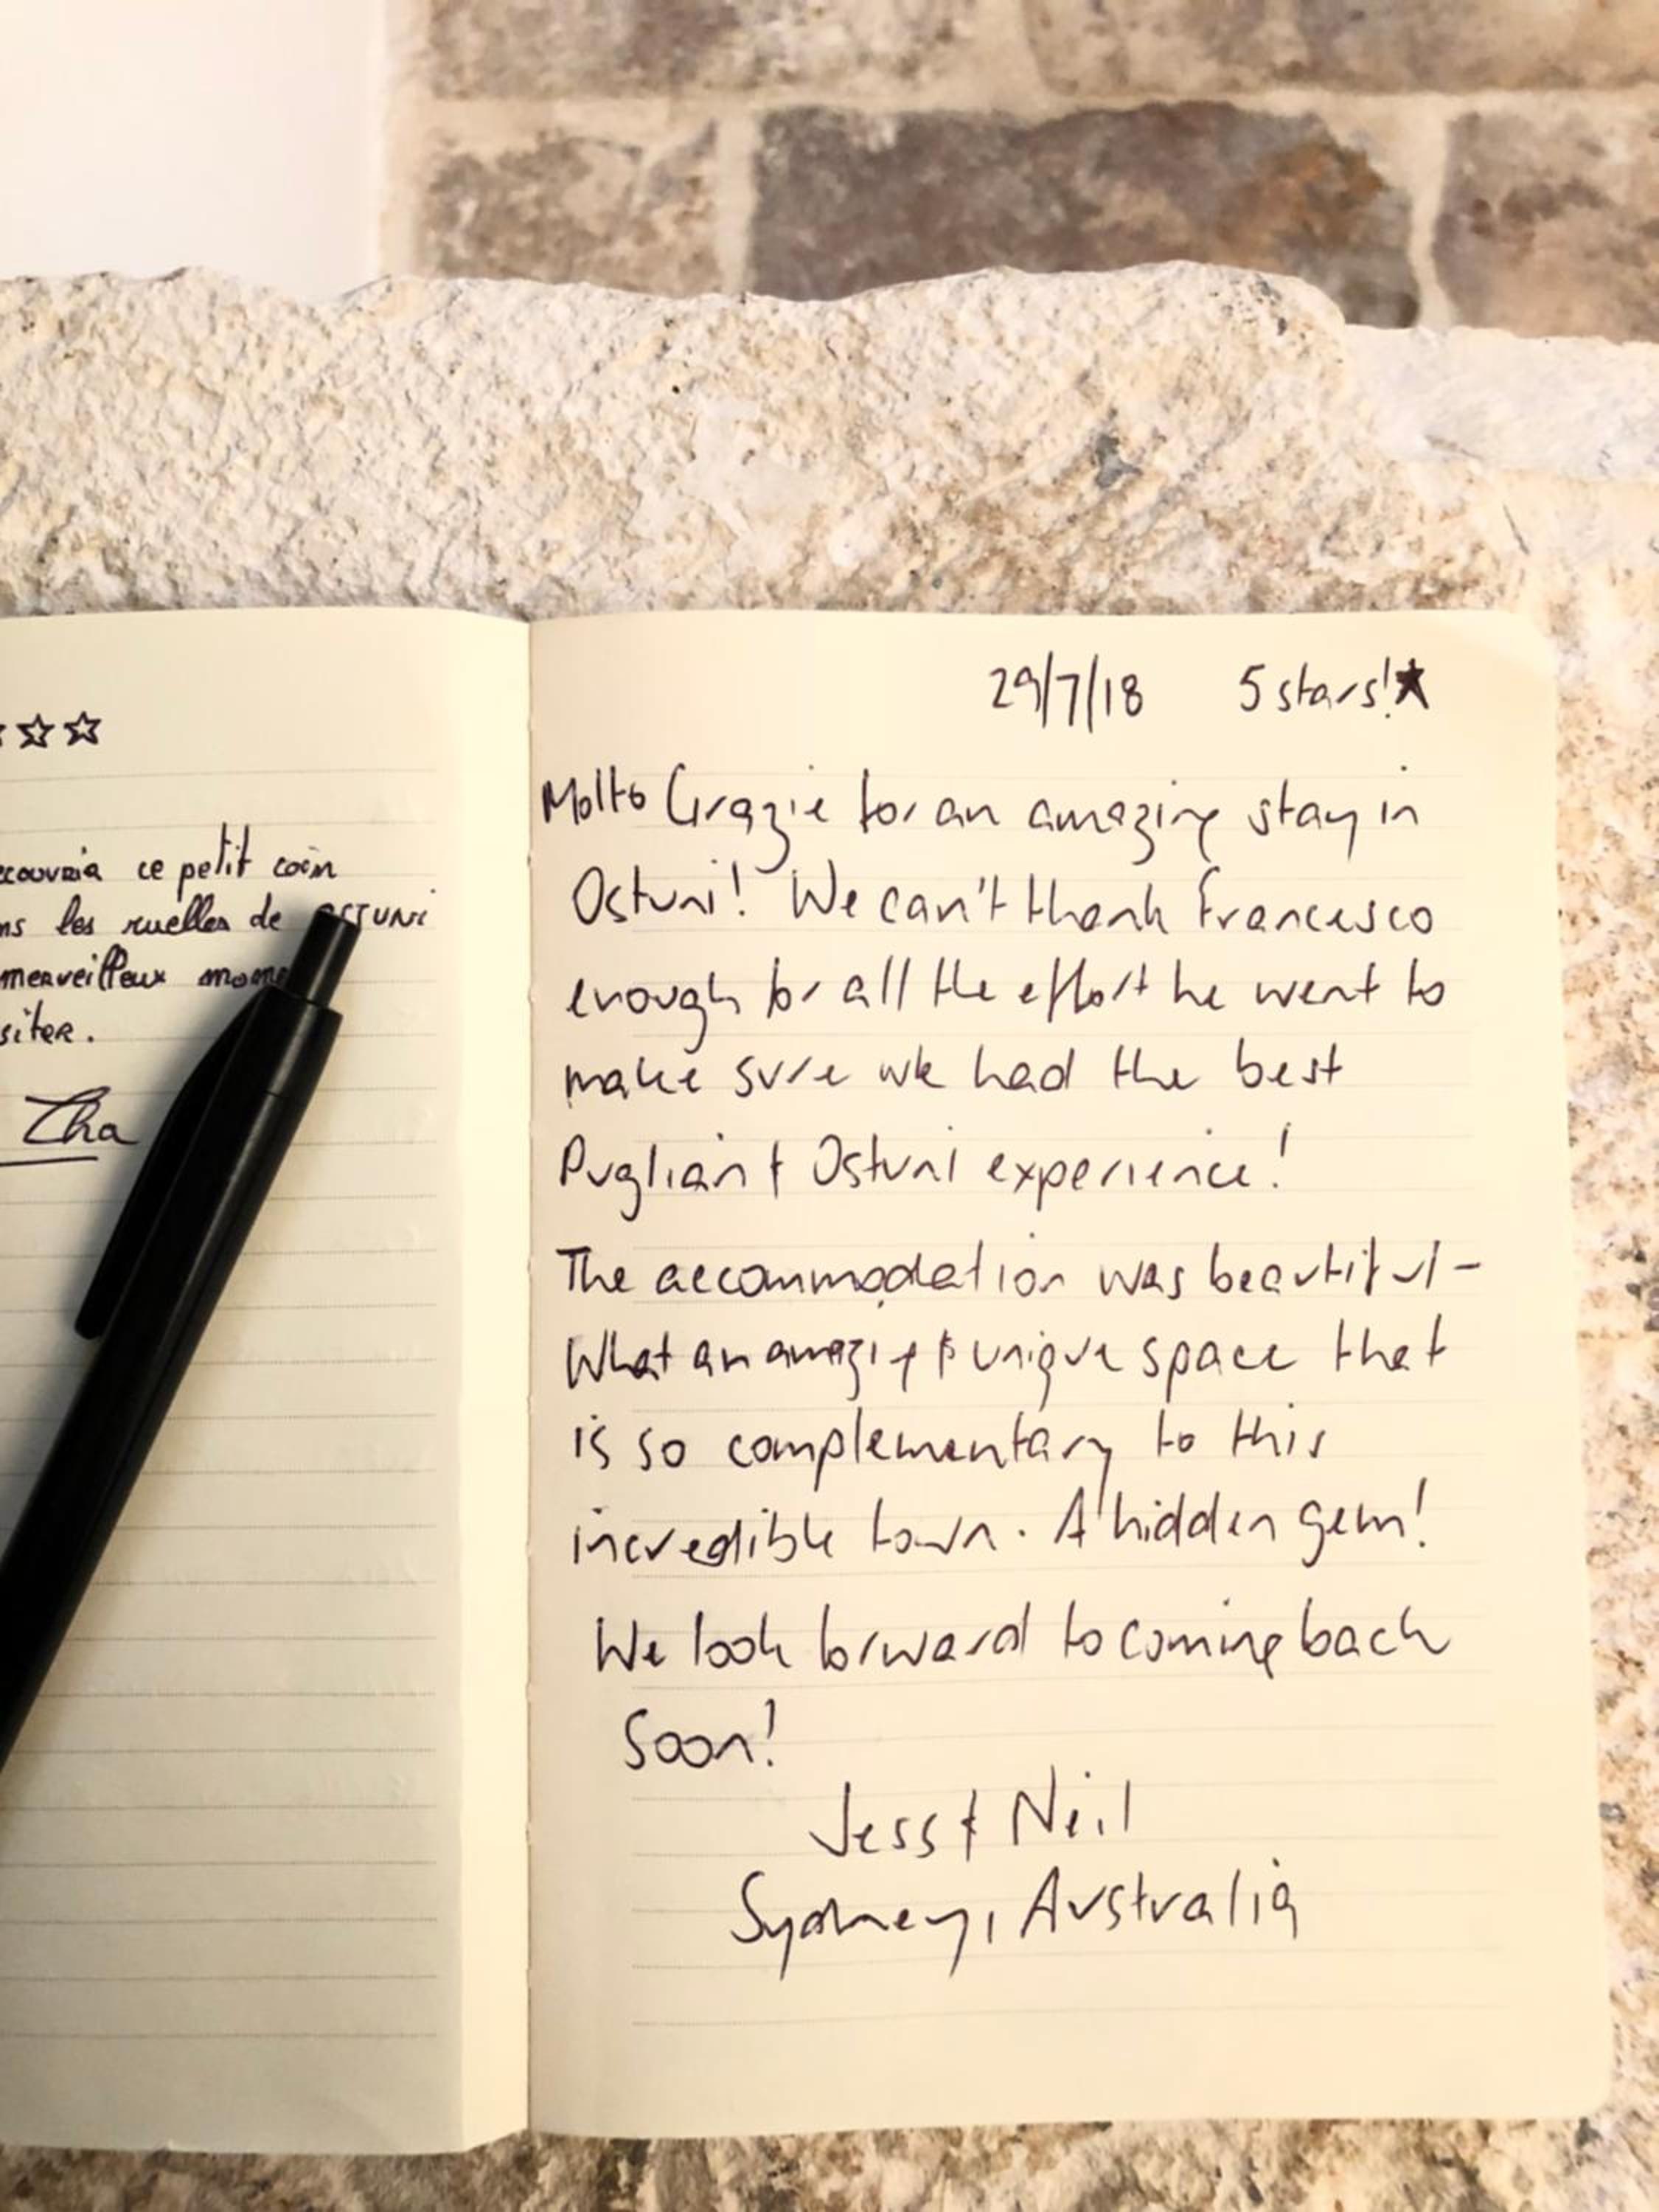 ☆☆
ce petit coin
les ruelles de OSTUNI
merveilleux
Zha
29/7/18 5 stars!★
Molto Grazie for an amazing stay in
Ostuni! We can't thank Francesco
enough for all the effort he went to
make sure we had the best
Puglian & Ostuni experience!
The accommodation was beautiful -
What an amazing & unique space that
is so complementary to this
incredible town. A hidden gem!
We look forward to coming back
Soon!
Jess & Neil
Sydney, Australia